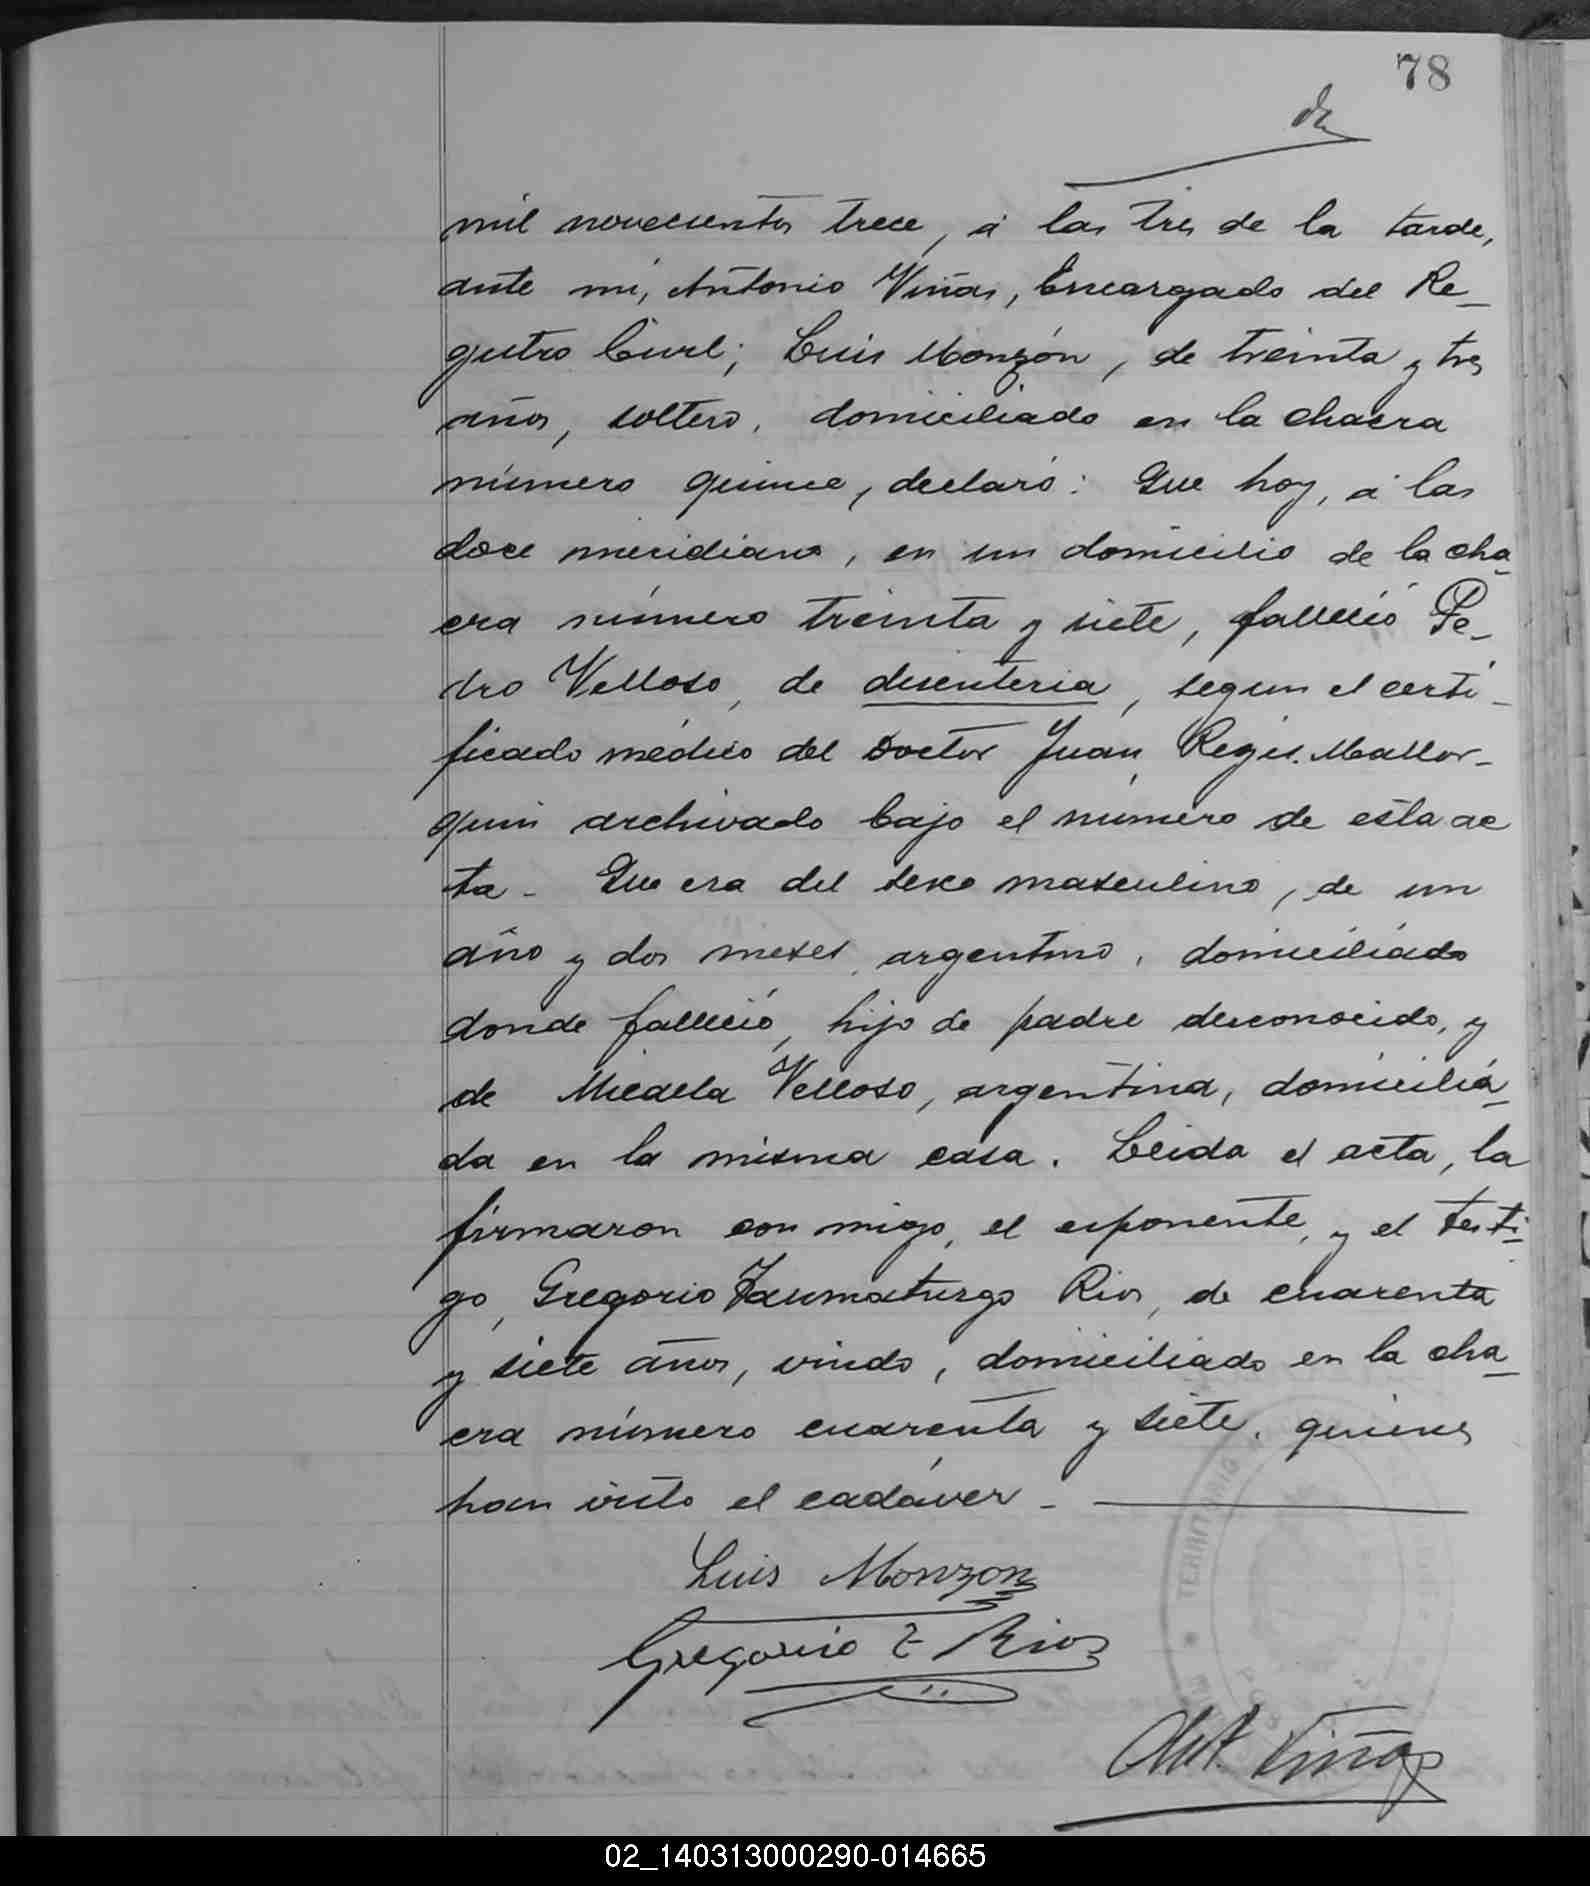 78
mil novecientos trece, á las tres de la tarde,
ante mi, Antonio Viñas, Encargado del Re-
gistro Civil; Luis Monzón, de treinta y tres
años, soltero, domiciliado en la chacra
número quince, declaró: Que hoy, á las
doce meridiano, en un domicilio de la cha-
cra número treinta y siete, falleció Pe-
dro Velloso, de disenteria, segun el certi-
ficado médico del Doctor Juan Regis Mallor-
quin archivado bajo el número de esta ac
ta - Que era del sexo masculino, de un
año y dos meses, argentino, domiciliado
donde falleció, hijo de padre desconocido, y
de Micaela Velloso, argentina, domicilia-
da en la misma casa. Leida el acta, la
firmaron con migo, el esponente, y el testi-
go, Gregorio Taumaturgo Rios, de cuarenta
y siete años, viudo, domiciliado en la cha-
cra número cuarenta y siete, quienes
han visto el cadáver -
Luis Monzon
Gregorio T Rios
TERRITORIO
Ant. Viñas
02_140313000290-014665